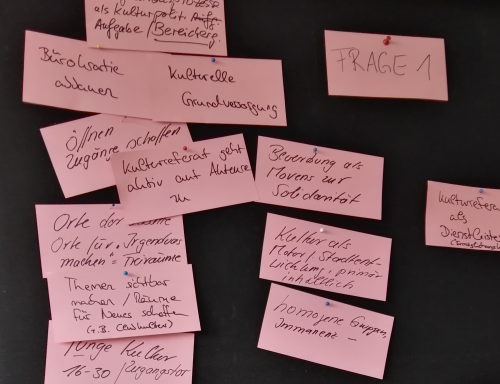 als Kulturpolit.
Aufgabe / Bereicherg.
Bürokratie
abbauen
Kulturelle
Grundversorgung
FRAGE 1
Öffnen
Zugänge schaffen
Kulturreferat geht
aktiv auf Akteure
zu
Bewerbung als
Movens zur
Solidarität
Kulturrefera
als
Dienstleiste
Orte der
Orte für „Irgendwas
machen" = Freiräume
Kultur als
Motor / Stadtent-
wicklung, primär
inhaltlich
Themen sichtbar
machen / Räume
für Neues schaffen
(z.B. Leerstellen)
homogene Gruppen,
Immanenz –
Junge Kultur
16-30 / Zugangstor